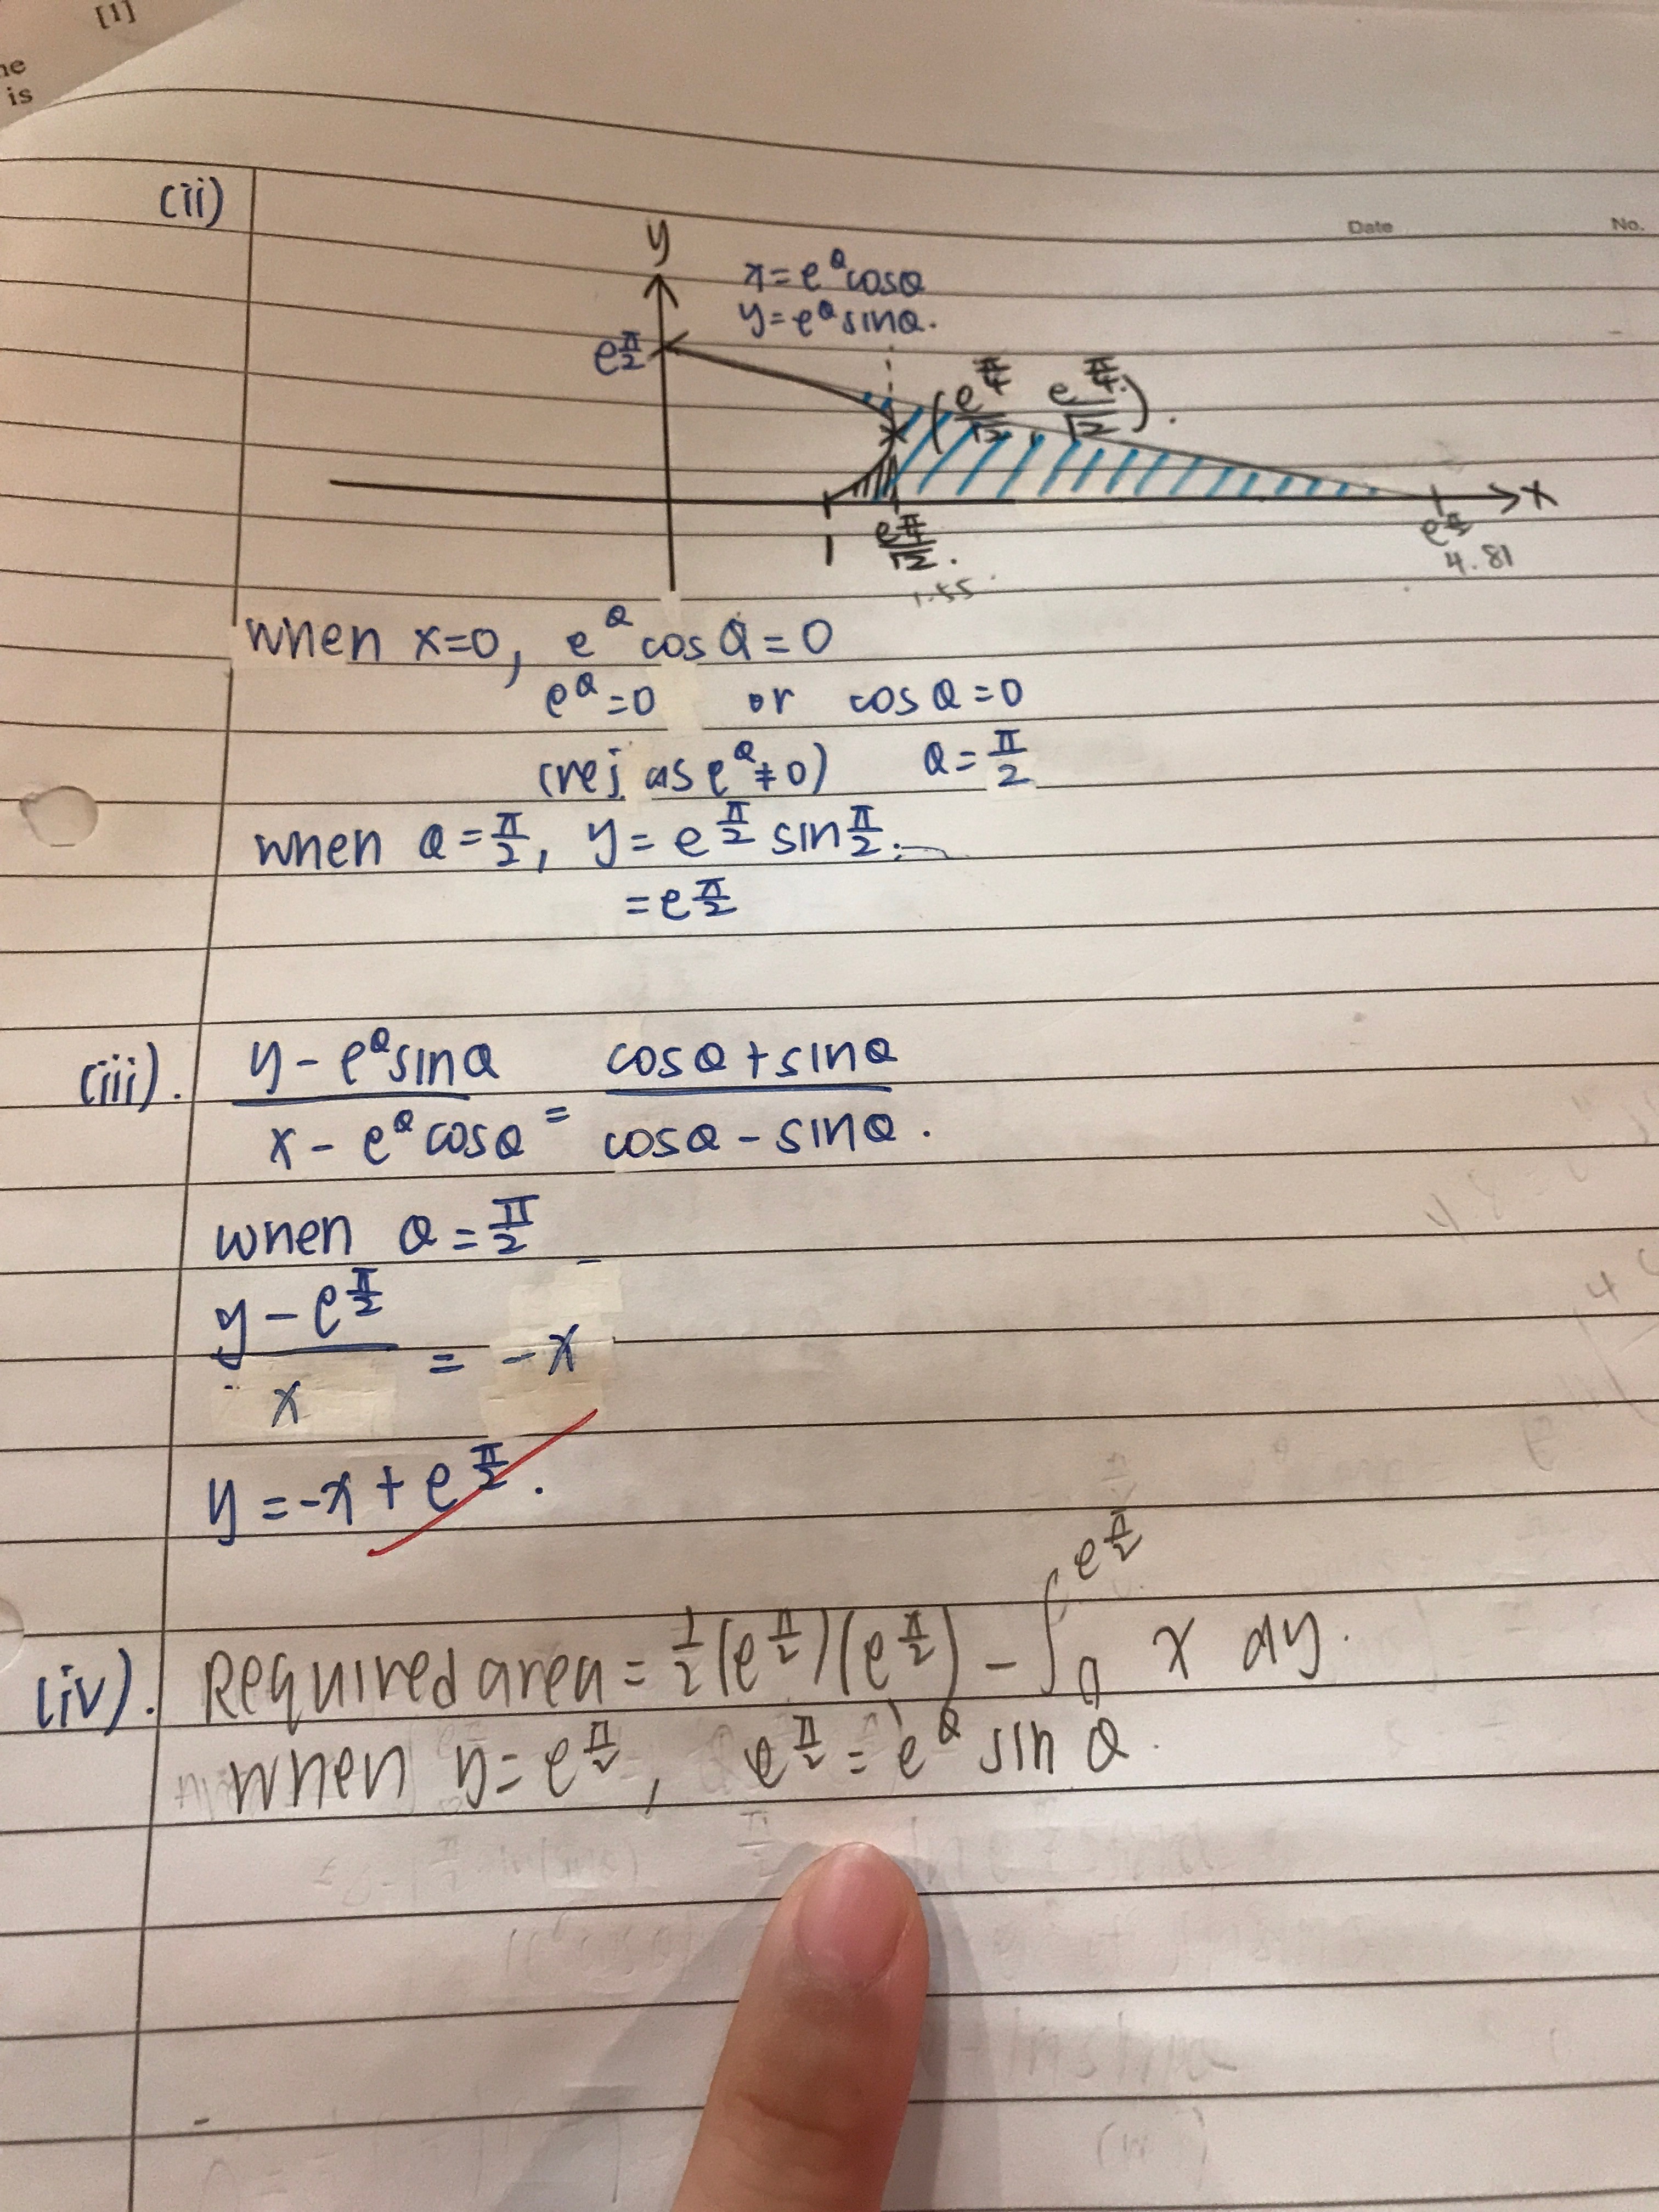 [1]
is
Date
No.
(ii)
y
x=e^θcosθ
y=e^θsinθ.
e^(π/2)
(e^(π/4)/√2, e^(π/4)/√2).
x
1
e^(π/4)/√2.
1.55
e^(π/2)
4.81
when x=0, e^θ cosθ=0
e^θ=0 or cosθ=0
(rej as e^θ≠0) θ=π/2
when θ=π/2, y=e^(π/2) sin π/2.
=e^(π/2)
(iii). (y-e^θsinθ)/(x-e^θcosθ) = (cosθ+sinθ)/(cosθ-sinθ).
when θ=π/2
(y-e^(π/2))/x = -x
y=-x+e^(π/2).
(iv). Required area = 1/2(e^(π/2))(e^(π/2)) - ∫_0^(e^(π/2)) x dy.
when y=e^(π/2), e^(π/2)=e^θ sin θ.